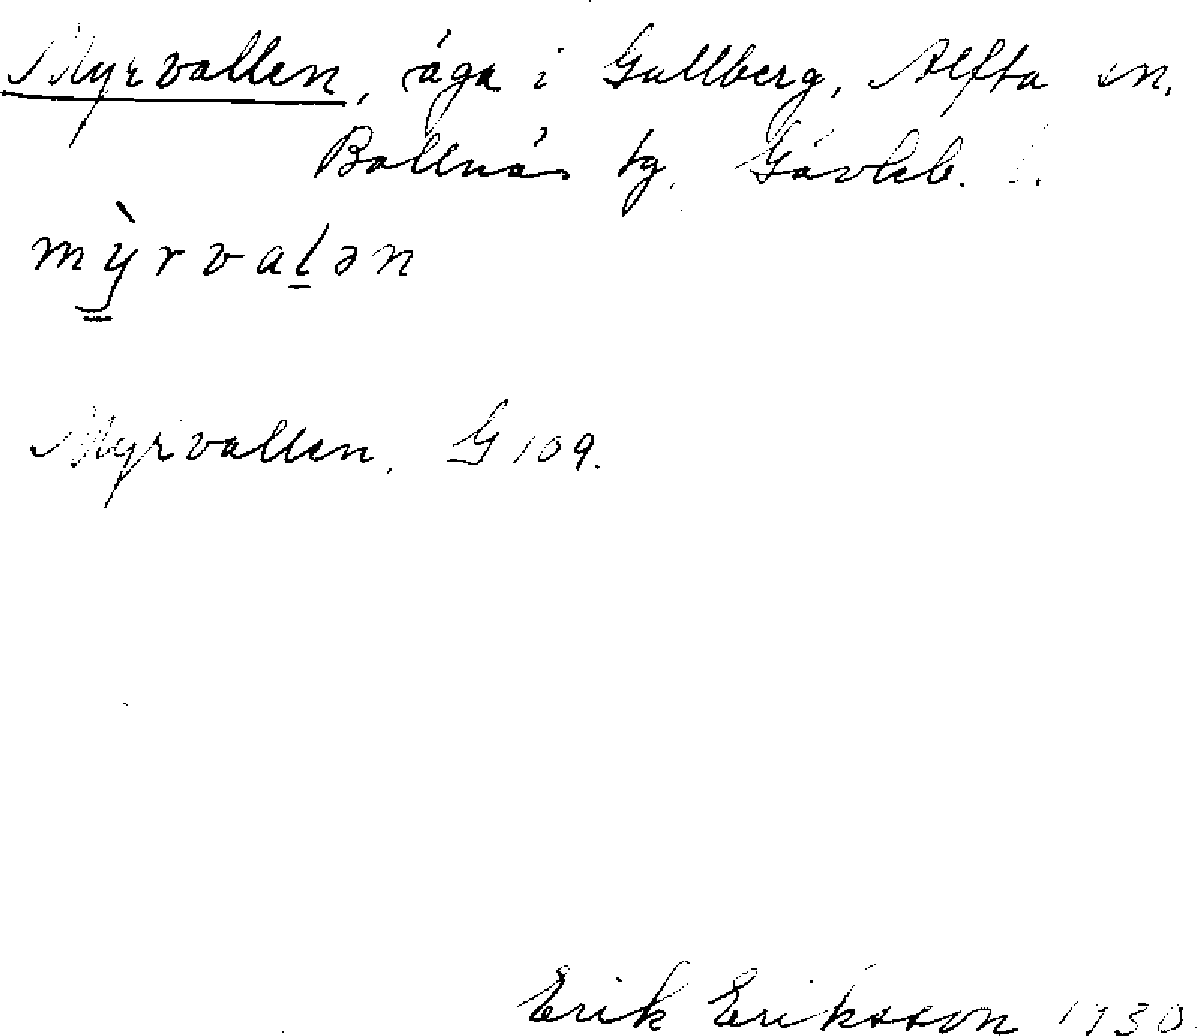 Myrvallen, äga i Gullberg, Alfta sn.
Bollnäs tg. Gävleb. l.
mỳrvalən
Myrvallen. G 109.
Erik Eriksson 1930